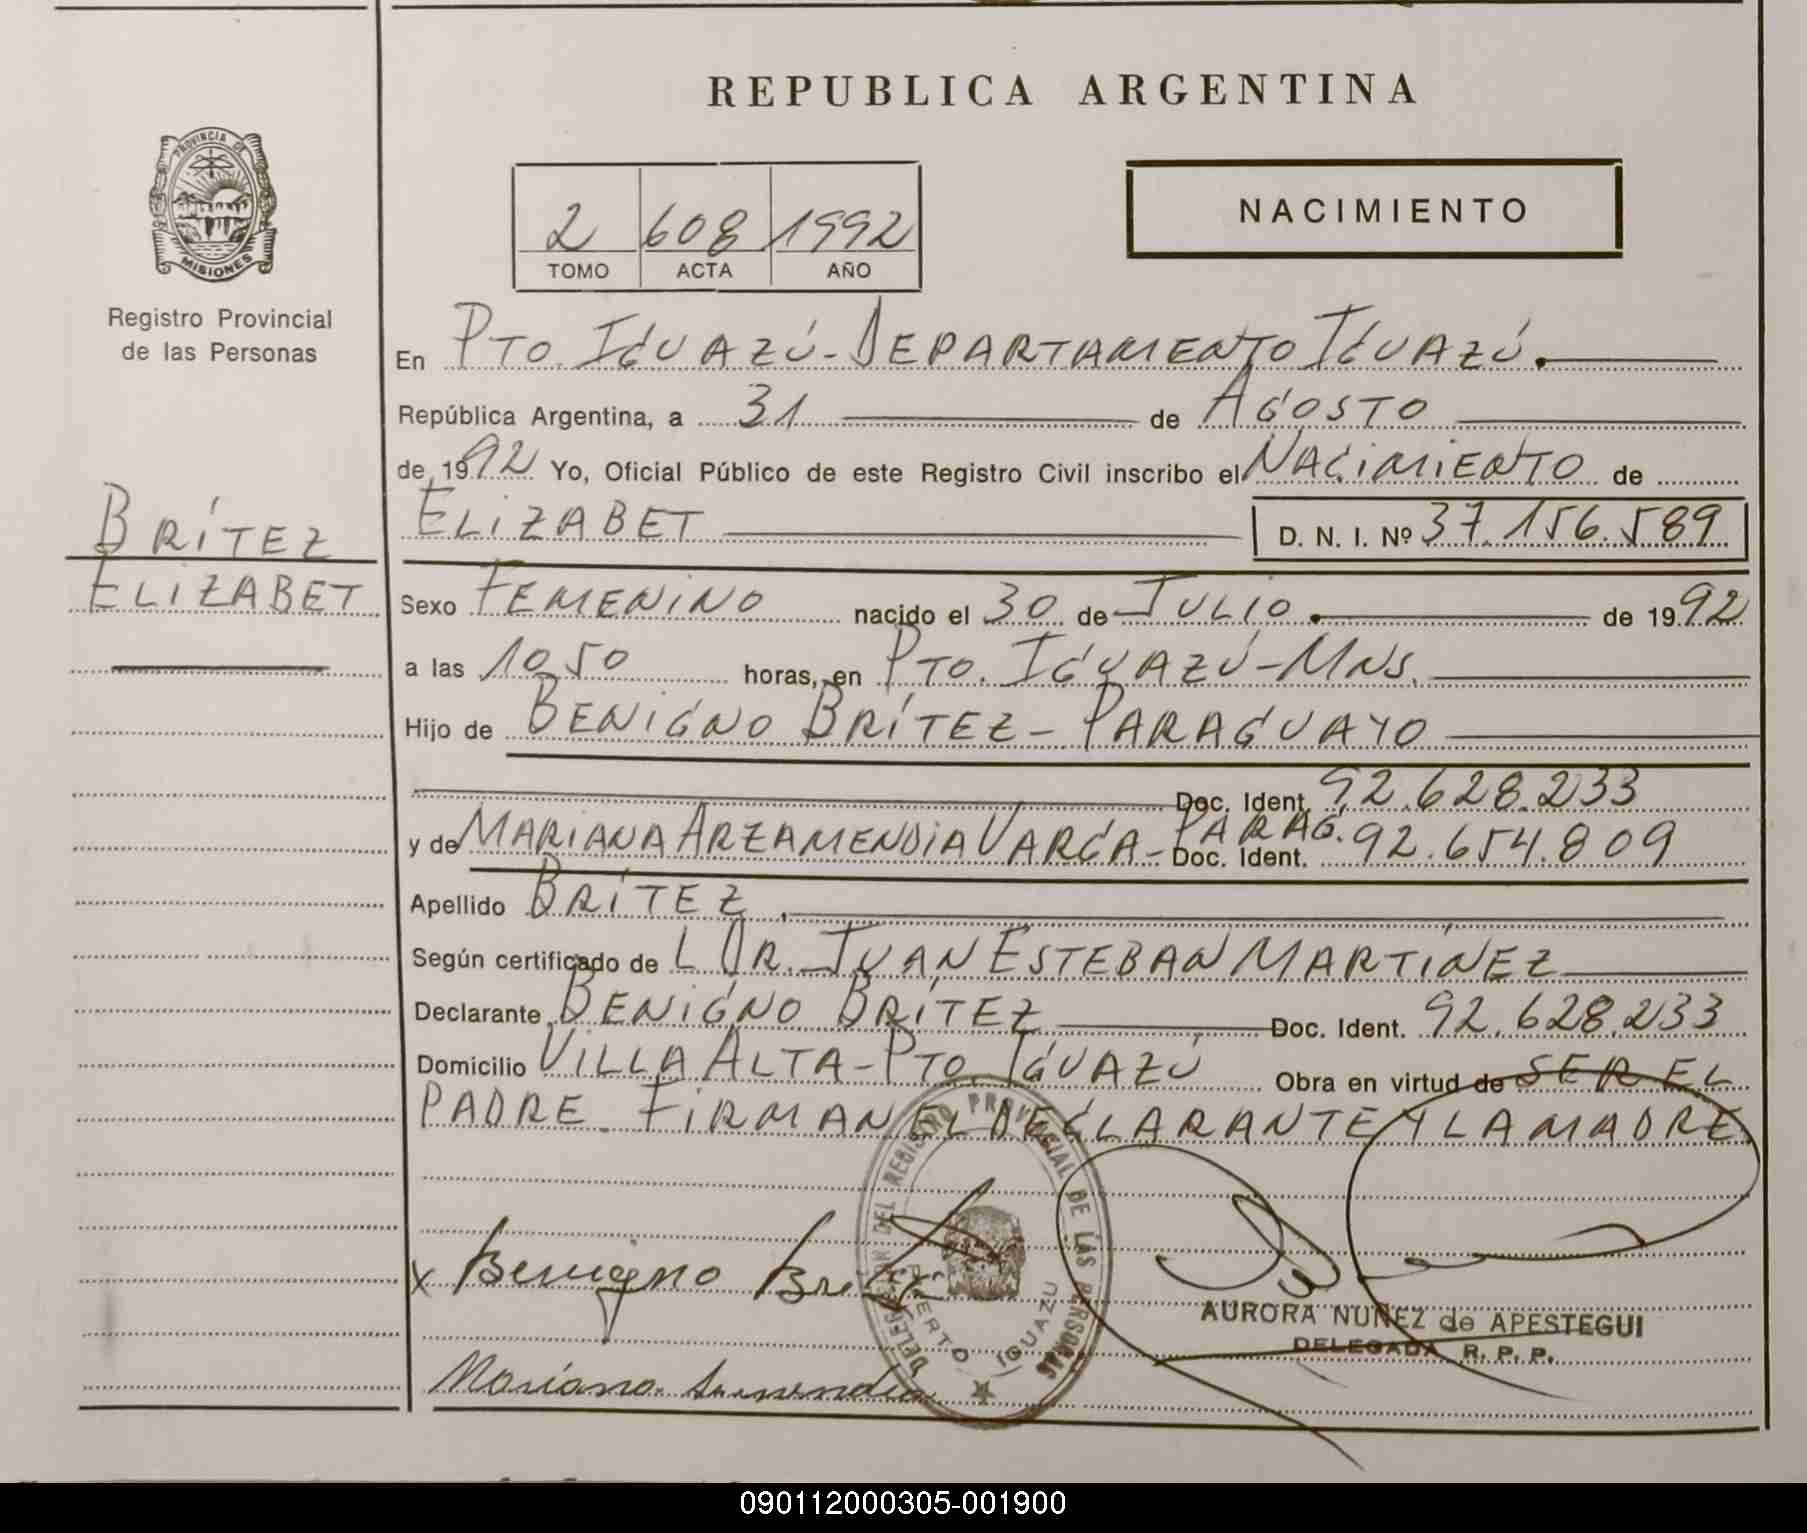 REPUBLICA ARGENTINA
PROVINCIA DE
MISIONES
Registro Provincial
de las Personas
2 608 1992
TOMO ACTA AÑO
NACIMIENTO
En PTO. IGUAZÚ - DEPARTAMENTO IGUAZÚ.
República Argentina, a 31 de AGOSTO
de 1992 Yo, Oficial Público de este Registro Civil inscribo el NACIMIENTO de
BRÍTEZ
ELIZABET
ELIZABET D. N. I. Nº 37.156.589
Sexo FEMENINO nacido el 30 de JULIO. de 1992
a las 10,50 horas, en PTO. IGUAZÚ - MNS.
Hijo de BENIGNO BRÍTEZ - PARAGUAYO
Doc. Ident. 92.628.233
y de MARIANA ARZAMENDIA VARGA - PARAG. Doc. Ident. 92.654.809
Apellido BRÍTEZ.
Según certificado de L DR. JUAN ESTEBAN MARTÍNEZ
Declarante BENIGNO BRÍTEZ Doc. Ident. 92.628.233
Domicilio VILLA ALTA - PTO. IGUAZÚ Obra en virtud de SER EL
PADRE. FIRMAN EL DECLARANTE Y LA MADRE
DELEGACION DEL REGISTRO PROVINCIAL DE LAS PERSONAS
PUERTO IGUAZU
x Benigno Britez
AURORA NUÑEZ de APESTEGUI
DELEGADA R. P. P.
Mariana
090112000305-001900